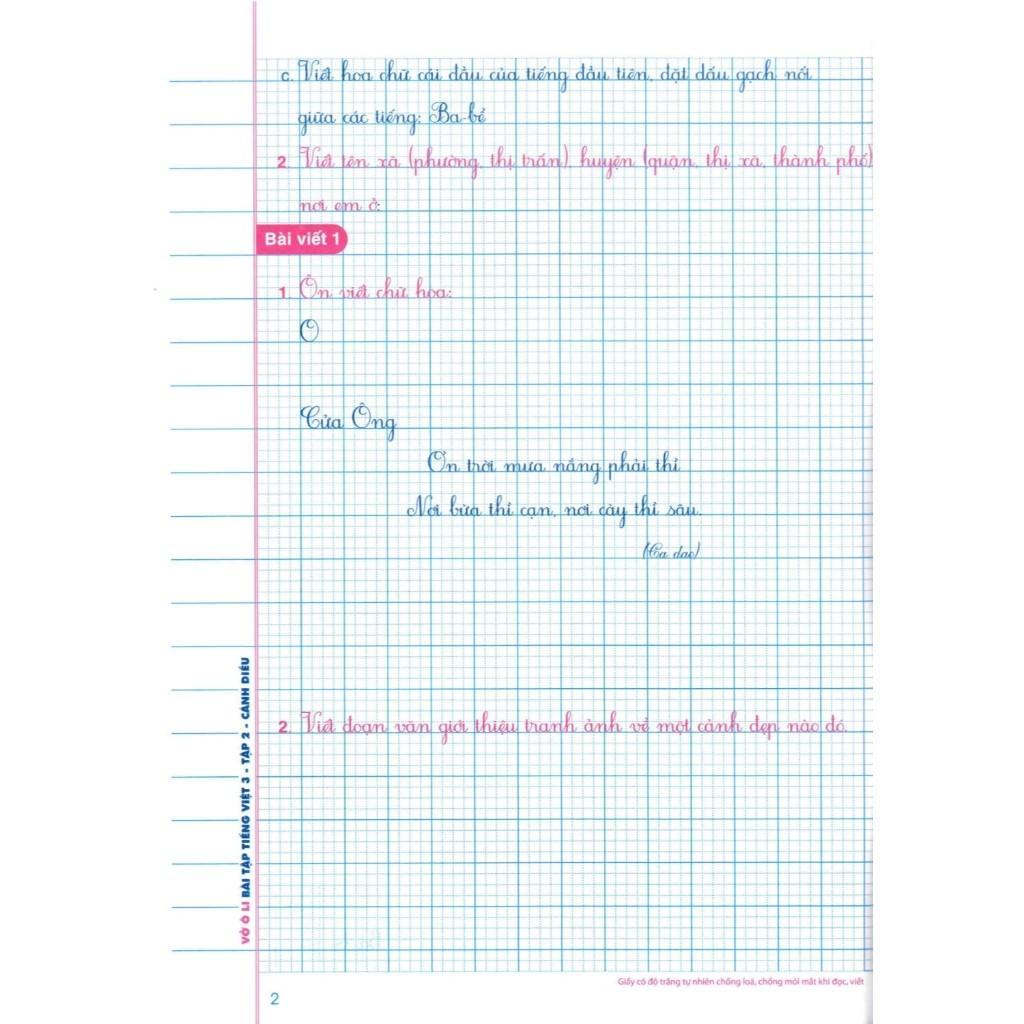 c. Viết hoa chữ cái đầu của tiếng đầu tiên, đặt dấu gạch nối
giữa các tiếng: Ba-bể
2. Viết tên xã (phường, thị trấn), huyện (quận, thị xã, thành phố)
nơi em ở:
Bài viết 1
1. Ôn viết chữ hoa:
O
Cửa Ông
Ơn trời mưa nắng phải thì
Nơi bừa thì cạn, nơi cày thì sâu.
(Ca dao)
2. Viết đoạn văn giới thiệu tranh ảnh về một cảnh đẹp nào đó.
VỞ Ô LI BÀI TẬP TIẾNG VIỆT 3 - TẬP 2 - CÁNH DIỀU
Giấy có độ trắng tự nhiên chống loá, chống mỏi mắt khi đọc, viết
2